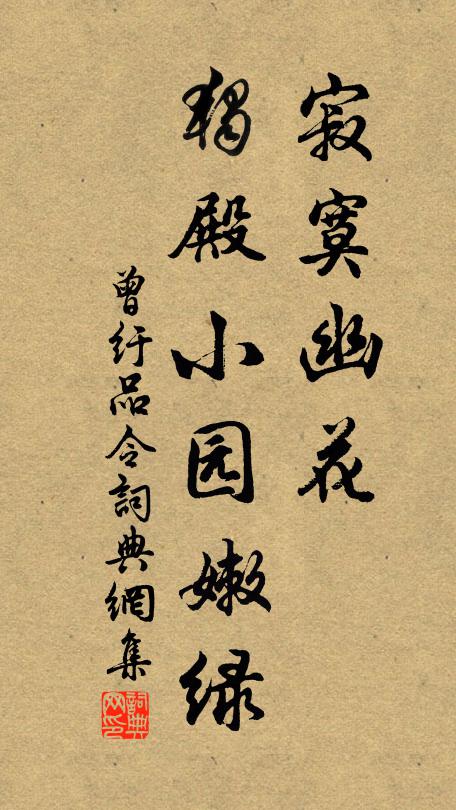 寂寞幽花
独殿小园嫩绿
曾纡品令詞典網集
詞典网印